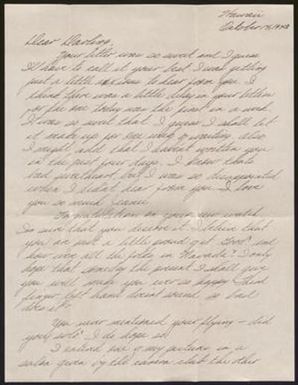 Hawaii
October 18, 1943
Dear Darling,
Your letter was so sweet and I guess
I'll have to call it your best. I was getting
just a little anxious to hear from you. I
think there was a little delay in your letters
for the one today was the first in a week.
It was so sweet that I guess I shall let
it make up for one week's waiting. also
I might add that I haven't written you
in the past four days. I know thats
bad sweetheart but I was so disappointed
when I didn't hear from you. I love
you so much
Congratulations on your new watch.
Im sure that you deserve it. I believe that
you are just a little proud yet dear? and
how were all the folks in Nevada? I only
hope that someday the present I shall give
you will make you ever so happy. Third
finger left hand doesn't sound so bad
does it?
You never mentioned your flying - did
you solo? I do hope so.
I entered one of my pictures in a
salon given by the camera club the other